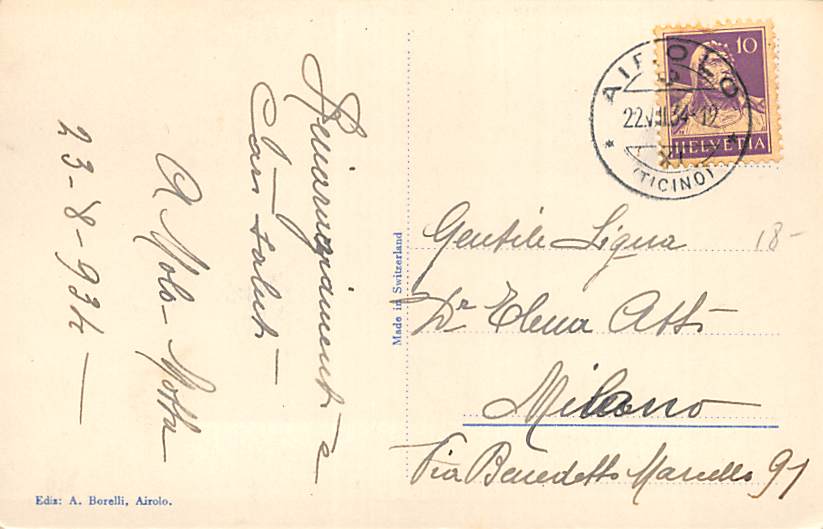 Ringraziamenti e
Cari saluti
A Molo-Motta
23-8-934
Ediz: A. Borelli, Airolo.
Made in Switzerland
10
HELVETIA
AIROLO
22.VIII.34-12
(TICINO)
18-
Gentile Signa
Dr Elena Atti
Milano
Via Benedetto Marcello 91